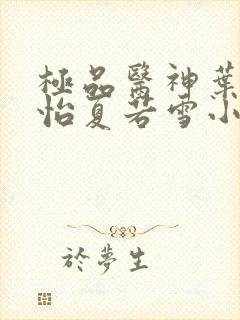 極品醫神葉
怡夏若雪小
於夢生